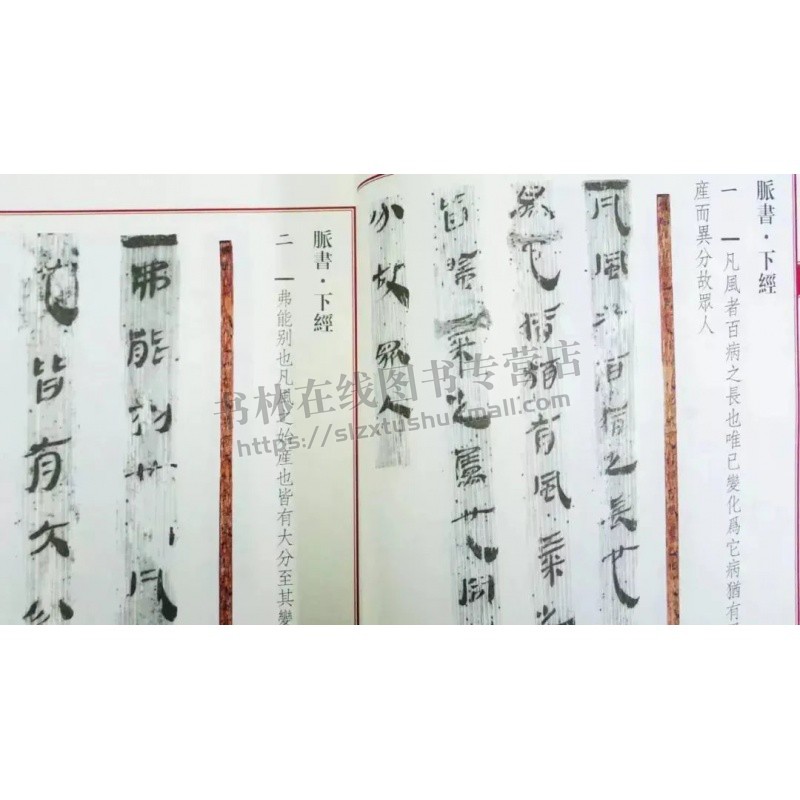 脈書·下經
一 凡風者百病之長也唯已變化爲它病猶有
産而異分故眾人
凡風者百病之長也
病猶有風氣
氣之屬也同
分故眾人
脈書·下經
二 弗能别也凡風之始産也皆有大分至其變
弗能別也凡
也皆有大分
书林在线图书专营店
https://slzxtushu.tmall.com/